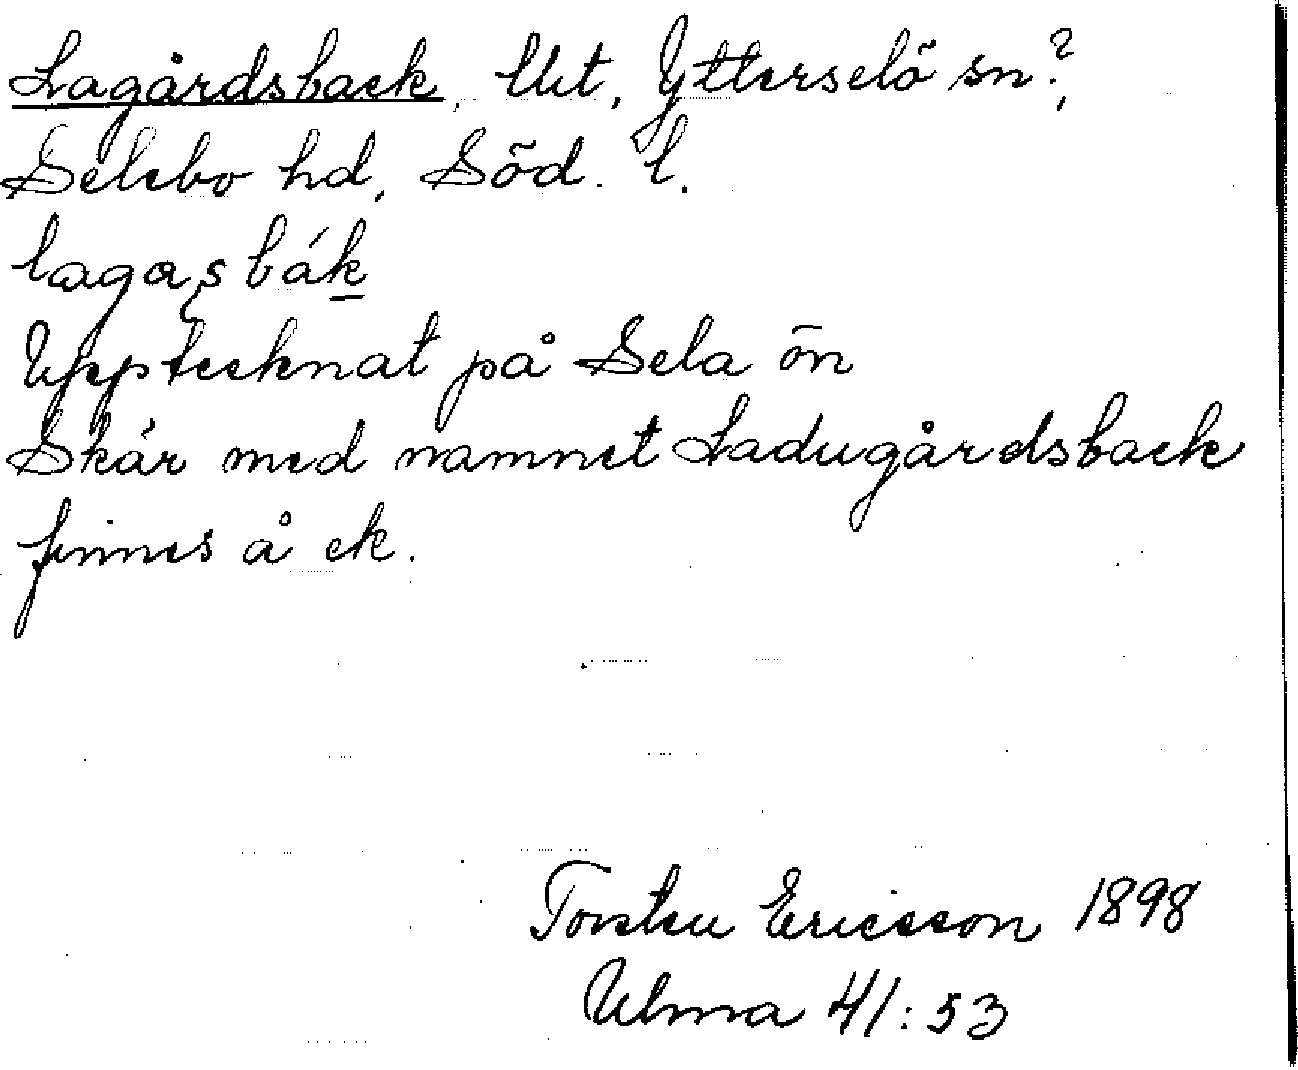 Lagårdsback, Utt, Ytterselö sn?,
Selebo hd, Söd. l.
lagasbák
Upptecknat på Sela ön
Skär med namnet Ladugårdsback
finnes å ek.
Torsten Ericsson 1898
Ulma 41:53